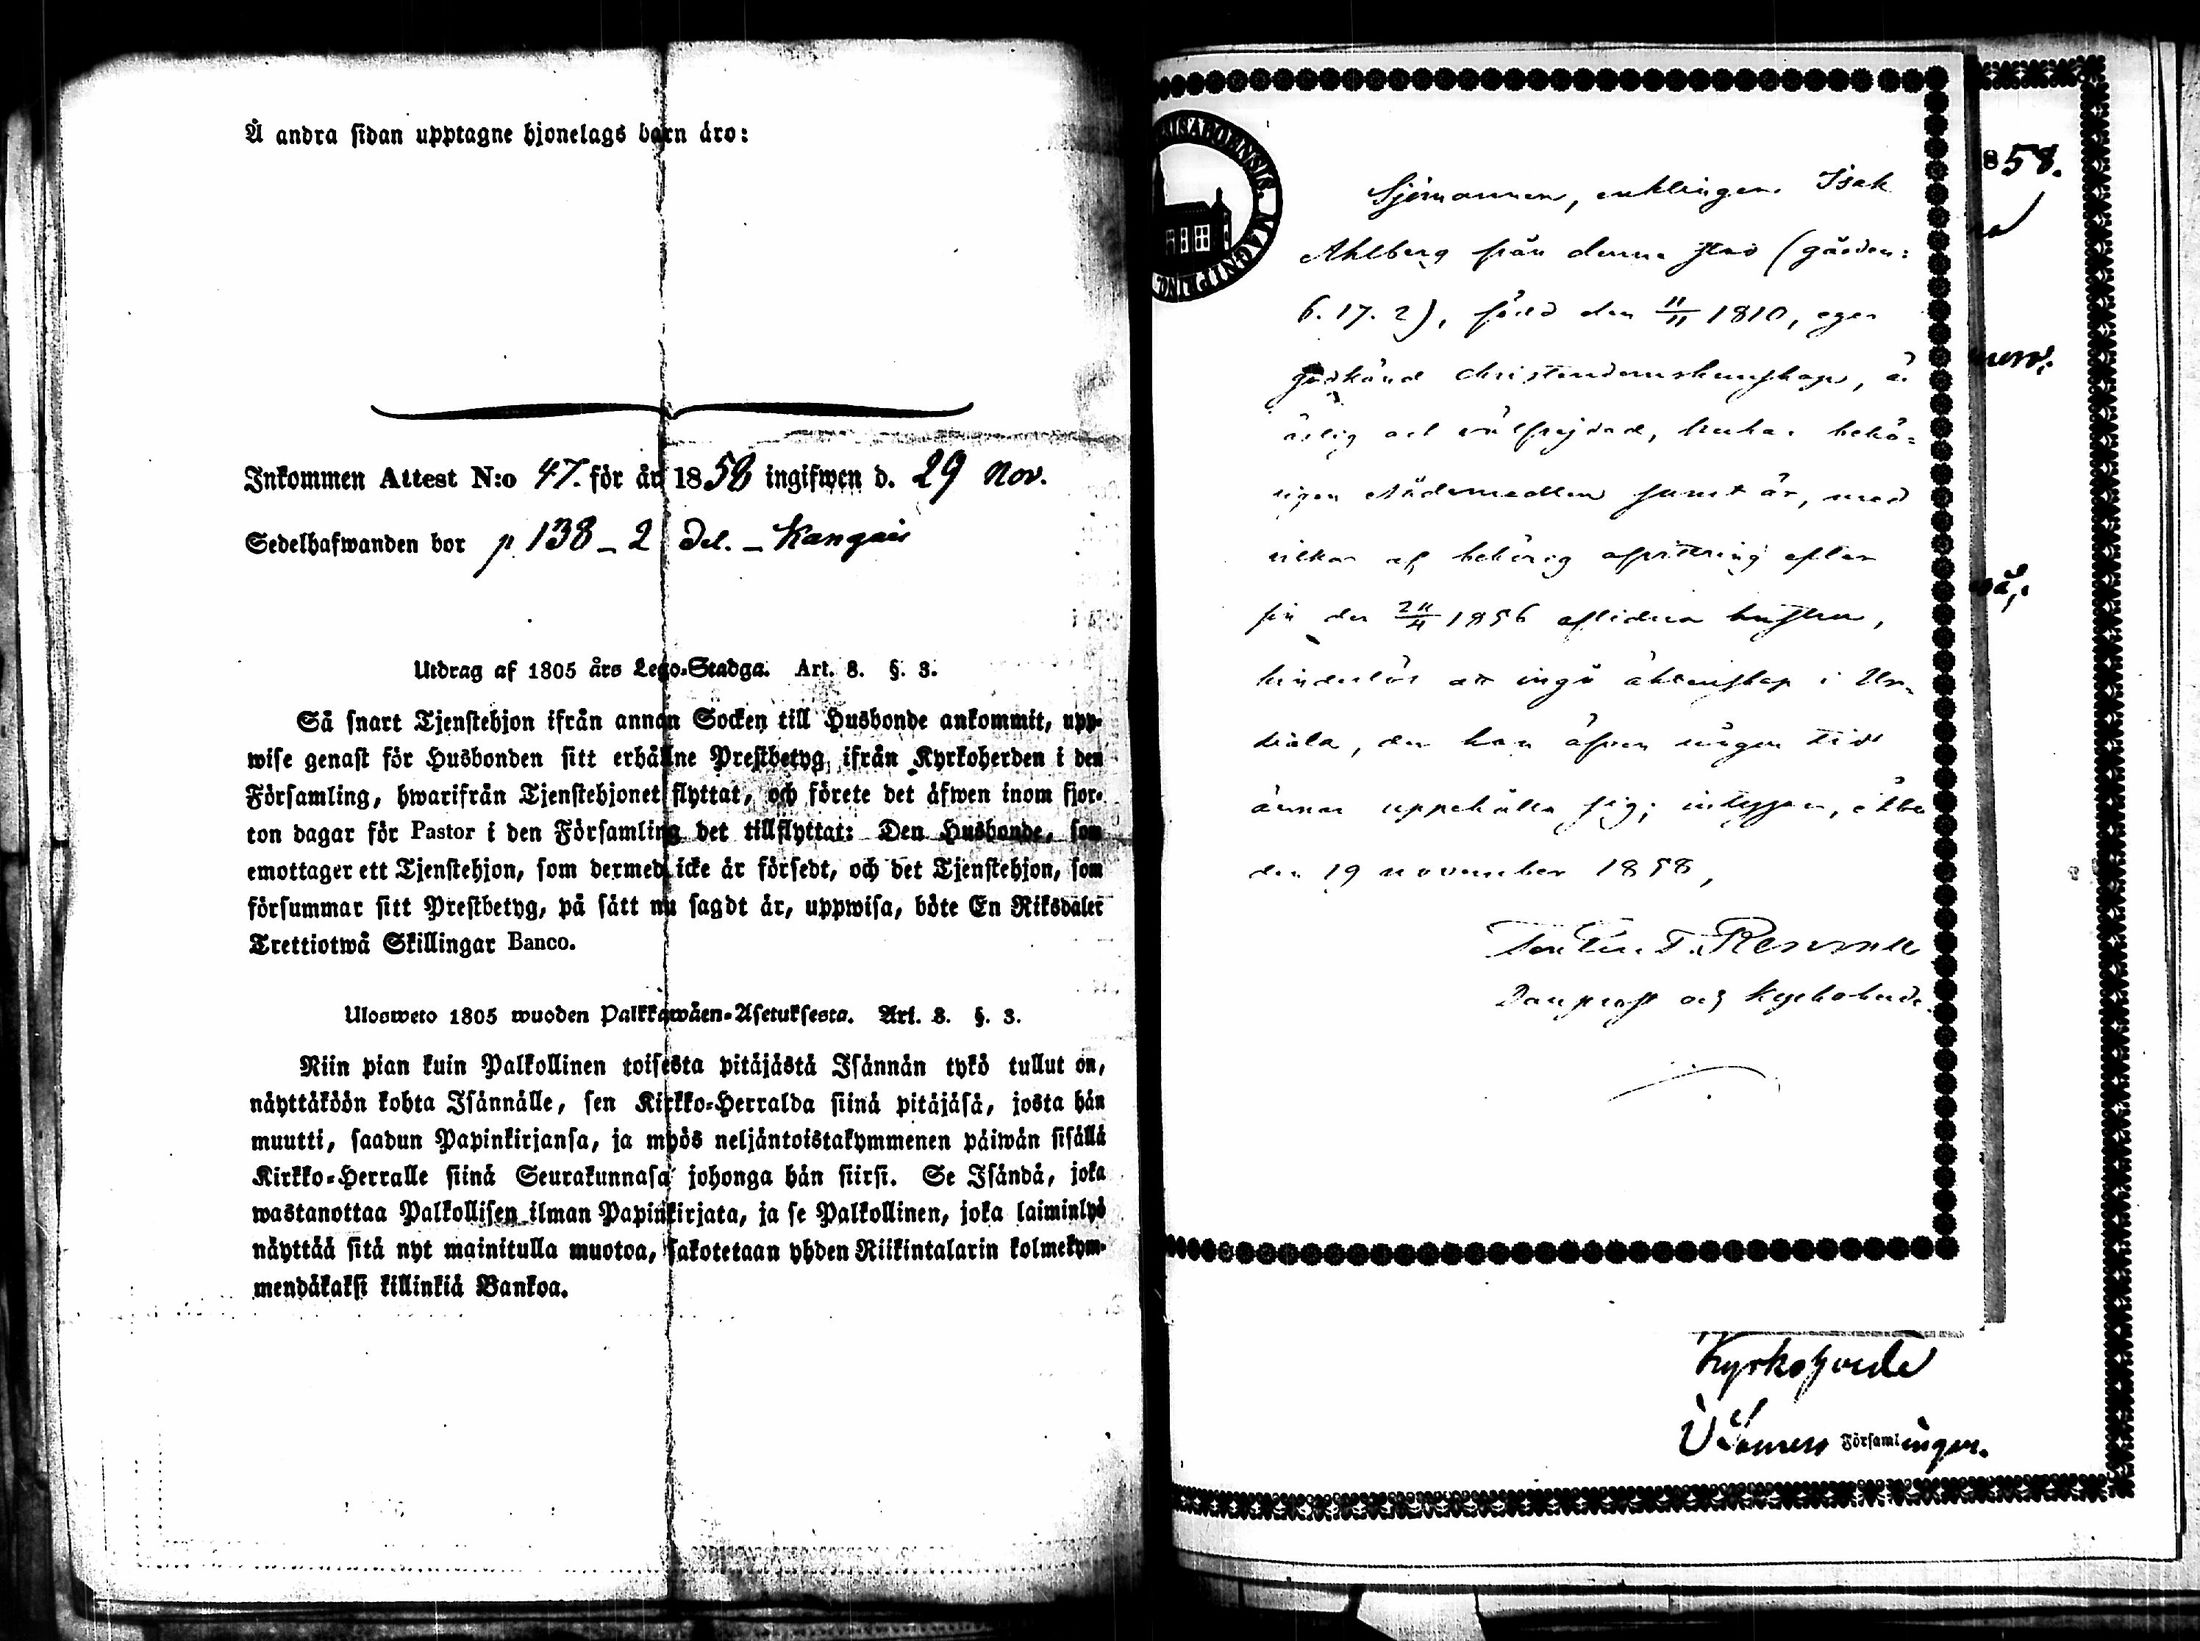 Å andra sidan upptagne hjonelags barn äro:
Inkommen Attest N:o 47. för år 1858 ingifwen d. 29 Nov.
Sedelhafwanden bor p 138 - 2 Del. -
Utdrag af 1805 års Lego-Stadga. Art. 8. §. 3.
Så snart Tjenstehjon ifrån annan Socken till Husbonde ankommit, upp-
wise genast för Husbonden sitt erhållne Prestbetyg ifrån Kyrkoherden i den
Församling, hwarifrån Tjenstehjonet flyttat, och förete det äfwen inom fjor-
ton dagar för Pastor i den Församling det tillflyttat: Den Husbonde, som
emottager ett Tjenstehjon, som dermed icke är försedt, och det Tjenstehjon, som
försummar sitt Prestbetyg, på sätt nu sagdt är, uppwisa, böte En Riksdaler
Trettiotwå Skillingar Banco.
Ulosweto 1805 wuoden Palkkawäen-Asetuksesta. Art. 8. §. 3.
Niin pian kuin Palkollinen toisesta pitäjästä Isännän tykö tullut on,
näyttäköön kohta Isännälle, sen Kirkko-Herralda siinä pitäjäsä, josta hän
muutti, saadun Papinkirjansa, ja myös neljäntoistakymmenen päiwän sisällä
Kirkko-Herralle siinä Seurakunnasa johonga hän siirsi. Se Isändä, joka
wastanottaa Palkollisen ilman Papinkirjata, ja se Palkollinen, joka laiminlyö
näyttää sitä nyt mainitulla muotoa, sakotetaan yhden Riikintalarin kolmekym-
mendäkaksi killinkiä Bankoa.
MAGNI PRINC.
Sjömannen, enklingen Isak
Ahlberg från denna stad (gården:
6. 17. 2), född den 11/11 1810, eger
godkänd christendomskunskap, är
ärlig och välfrejdad, brukar behö-
rigen nådemedlen samt är, med
vilkor af behörig afvittring efter
sin den 1856 aflidna hustru,
hinderlös att ingå äktenskap i
der han äfven någon tid
ärnar uppehålla sig; intygar, Åbo
den 19 november 1858,
Domprost och Kyrkoherde.
858.
Kyrkoherde
Församlingen.